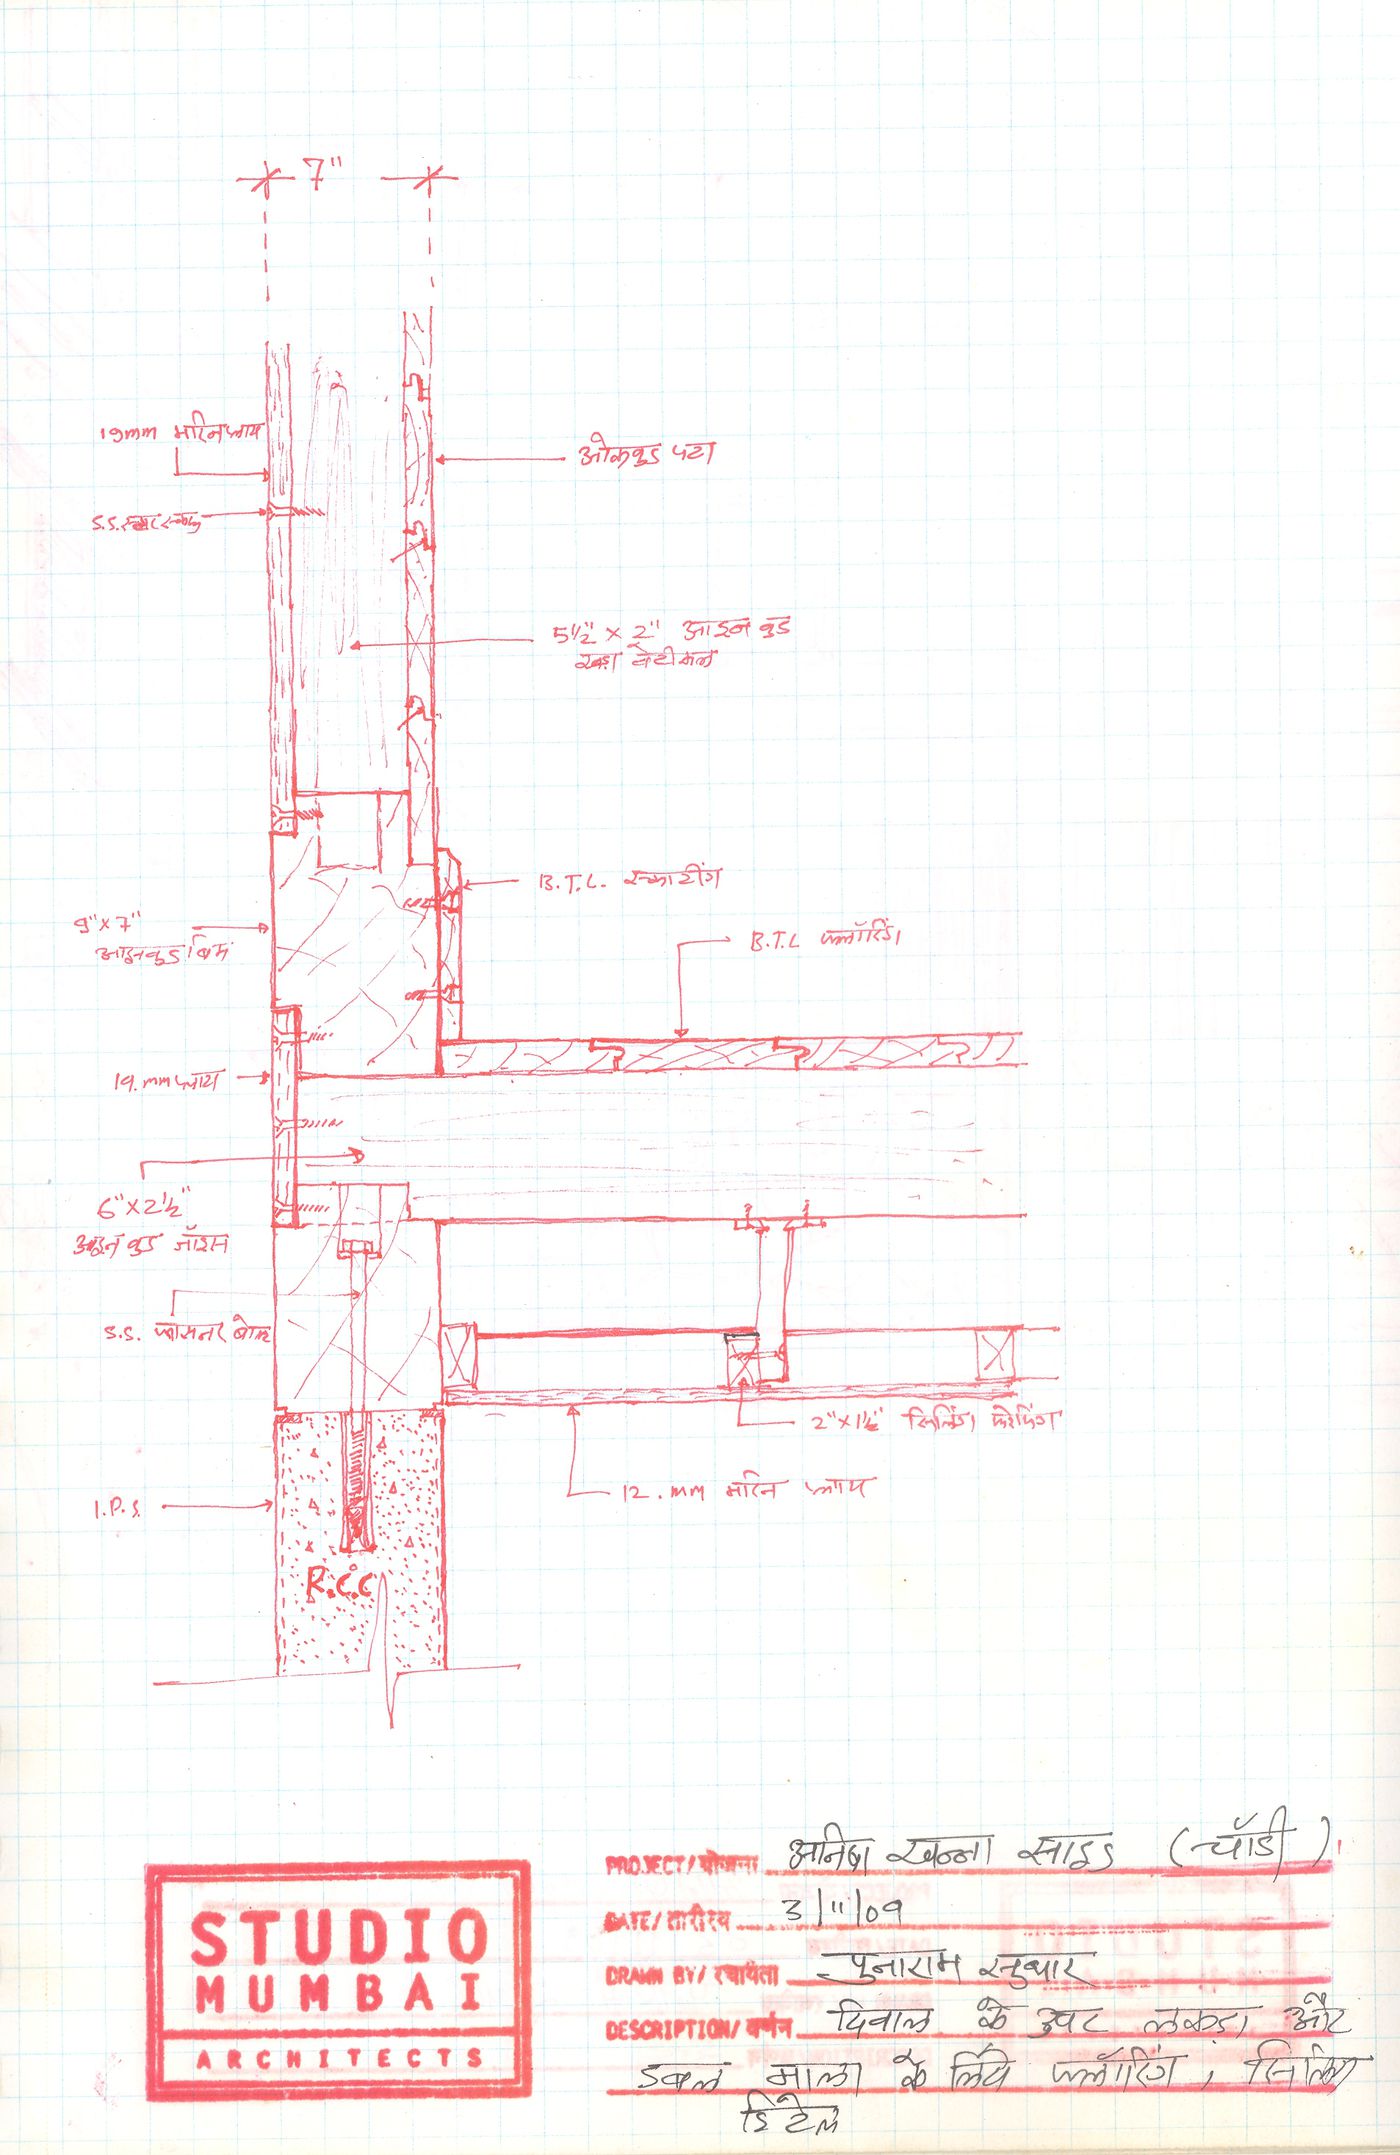 7"
19mm मरिन प्लाय
S.S. स्टार स्क्रू
ओकवुड पटा
5½" X 2" आइन वुड
खड़ा वेटीकल
B.T.L. स्काटींग
9" X 7"
आइन वुड बिम
B.T.L फ्लॉरिंग
19.mm प्लाय
6" X 2½"
आइन वुड जॉइस
S.S. फासनर बोल्ट
2" X 1½" सिलिंग फ्रेमिंग
12.mm मरिन प्लाय
I.P.S.
R.C.C
STUDIO
MUMBAI
ARCHITECTS
PROJECT/योजना खन्ना साइड (चॉंडी)
DATE/तारीख 3/11/09
DRAWN BY/रचायेता पुनाराम सुथार
DESCRIPTION/वर्णन दिवाल के उपर लकड़ा और
डबल माला के लिये फ्लॉरिंग, सिलिंग
डिटेल